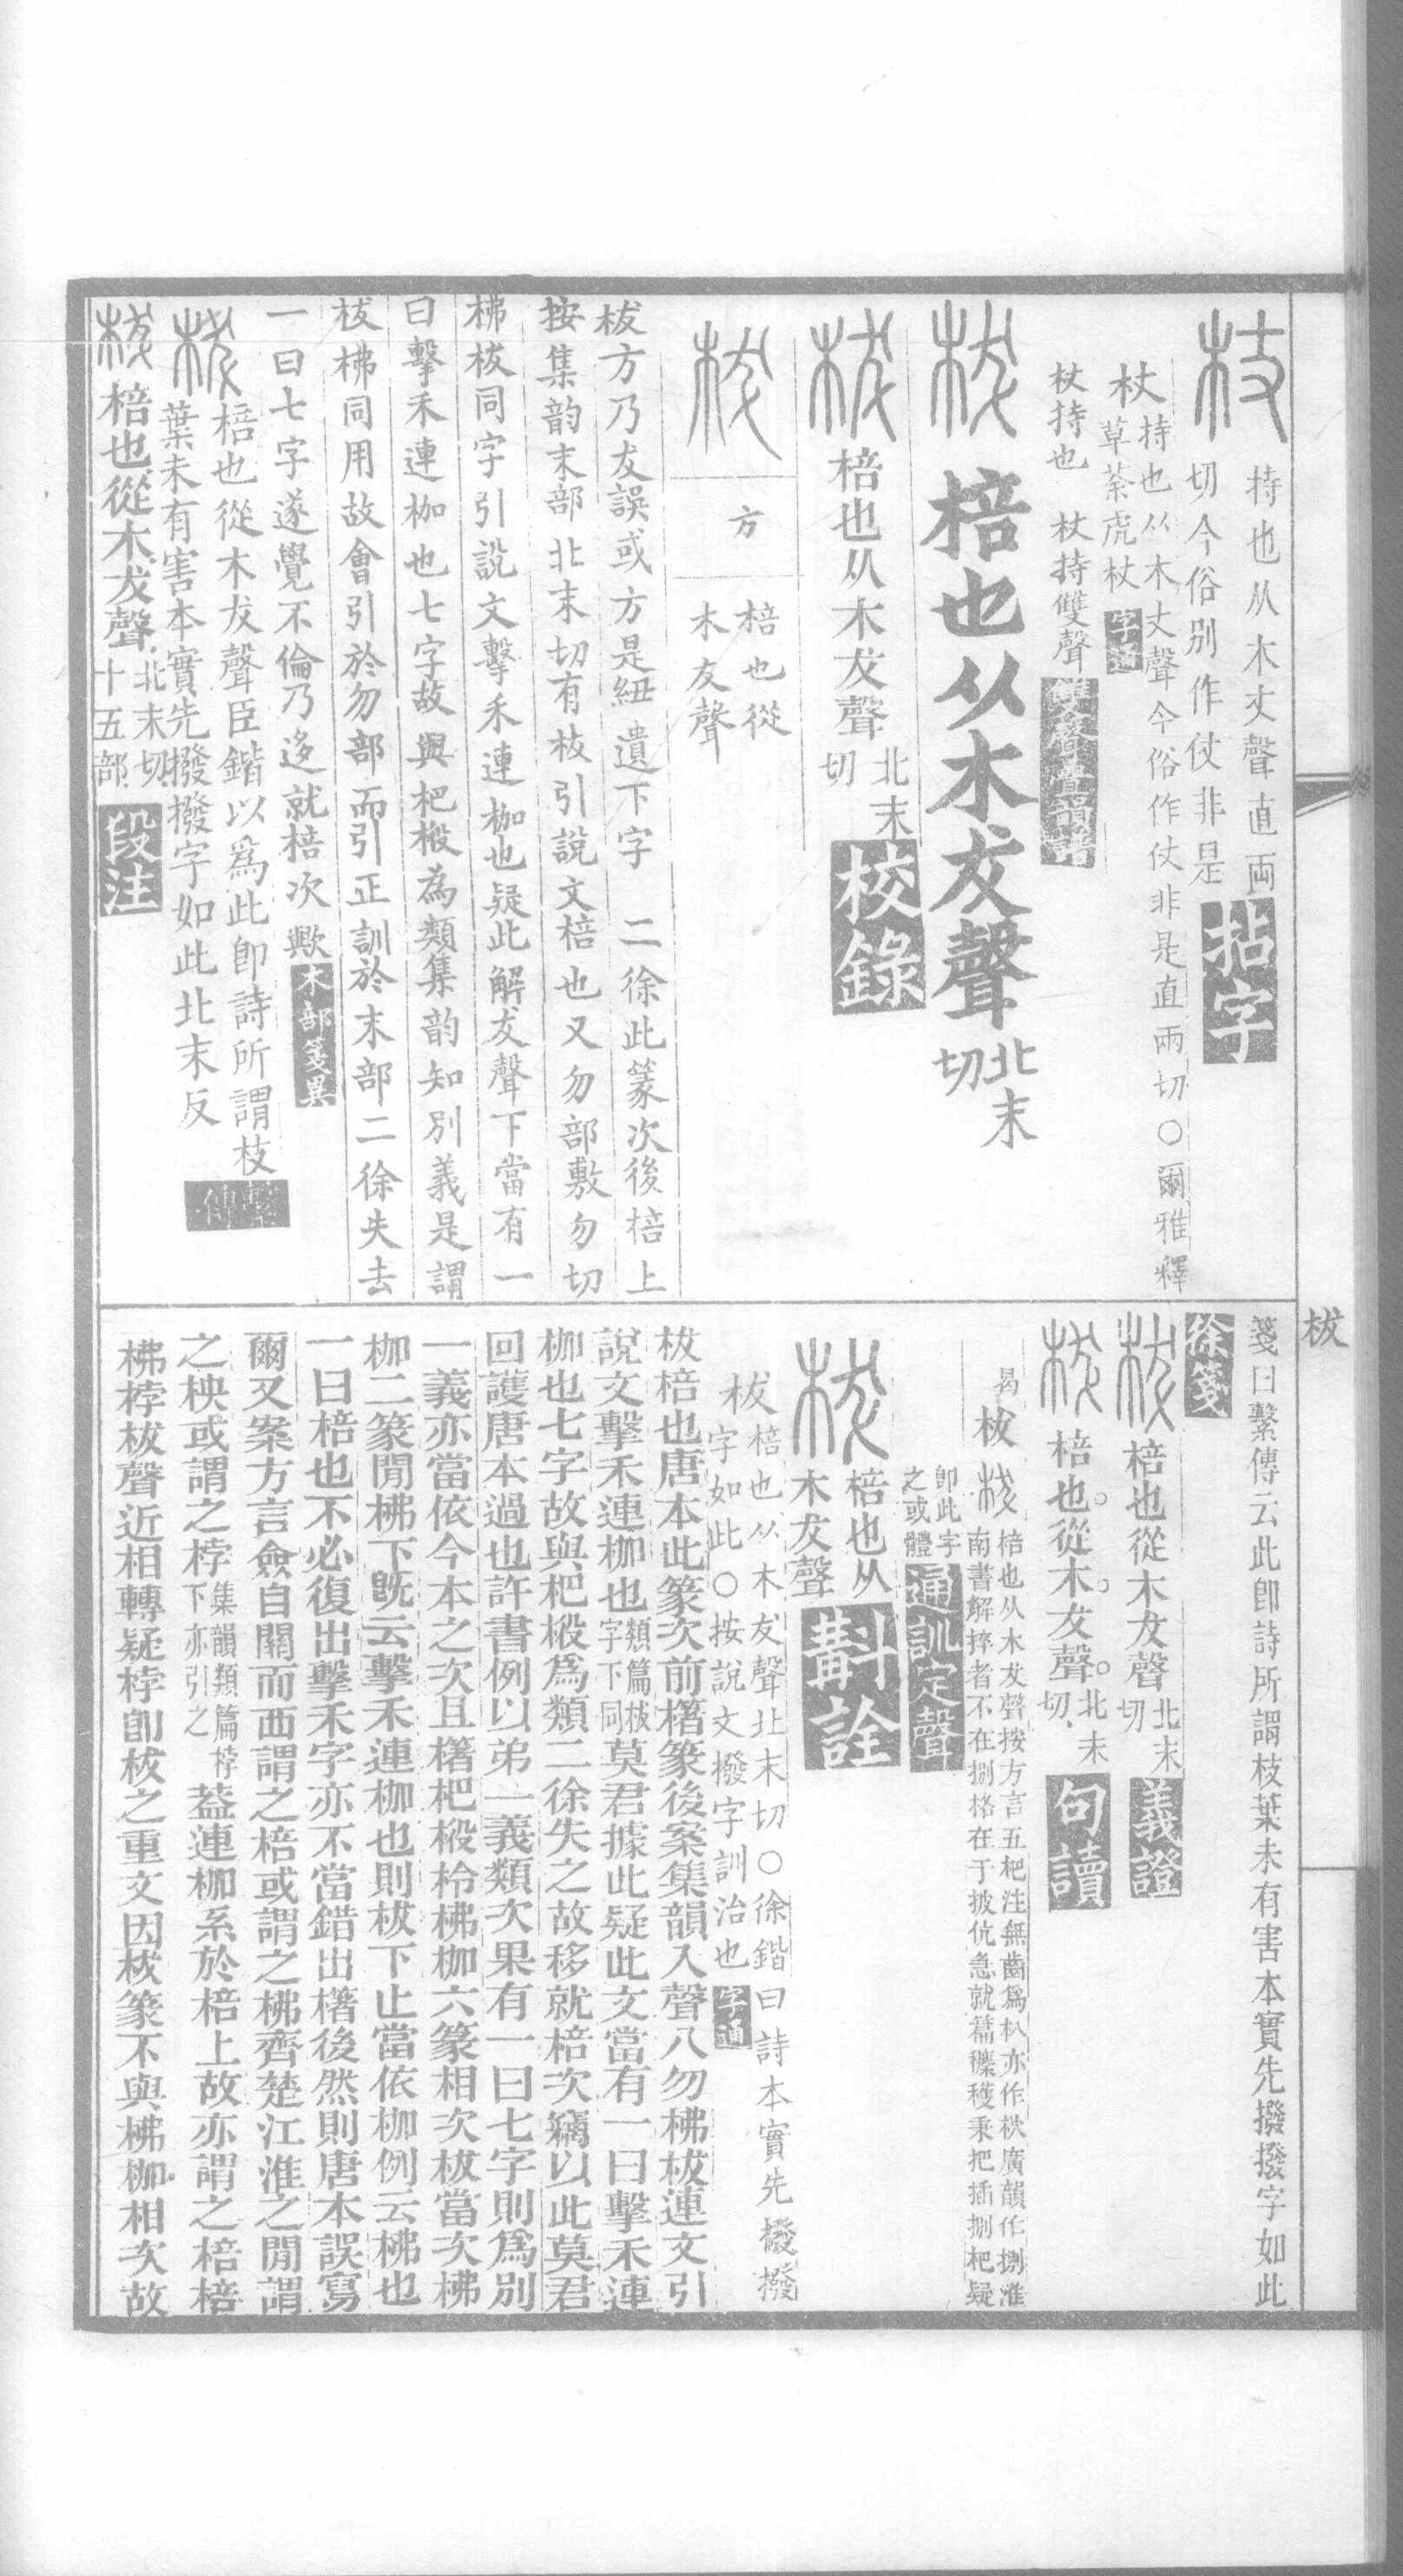 持也从木丈聲直兩
切今俗別作仗非是
拈字
杖
持也从木丈聲今俗作仗非是直兩切○爾雅釋
草荼虎杖
字通
杖持也 杖持雙聲
雙聲疊韻譜
棓也从木犮聲
北末
切
棓也从木犮聲
北末
切
校錄
方
棓也從
木友聲
柭方乃犮誤或方是紐遺下字 二徐此篆次後棓上
按集韵末部北末切有柭引說文棓也又勿部敷勿切
柫柭同字引說文擊禾連枷也疑此解犮聲下當有一
曰擊禾連枷也七字故與杷椴為類集韵知別義是謂
柭柫同用故會引於勿部而引正訓於末部二徐失去
一曰七字遂覺不倫乃迻就棓次歟
木部箋異
棓也從木犮聲臣鍇以爲此卽詩所謂枝
葉未有害本實先撥撥字如此北末反
繫傳
棓也從木犮聲
北末切
十五部
段注
柭
箋曰繫傳云此卽詩所謂枝葉未有害本實先撥撥字如此
徐箋
棓也從木犮聲
北末
切
義證
棓也從木犮聲
北末
切
句讀
曷
柭
棓也从木犮聲按方言五杷注無齒爲朳亦作㭁廣韻作捌淮
南書解捽者不在捌格在于披伉急就篇穫秉把插捌杷疑
卽此字
之或體
通訓定聲
棓也从
木犮聲
斠詮
柭
棓也从木犮聲北末切○徐鍇曰詩本實先撥撥
字如此○按說文撥字訓治也
字通
柭棓也唐本此篆次前楮篆後案集韻入聲八勿柫柭連文引
說文擊禾連枷也
類篇柭
字下同
莫君據此疑此文當有一曰擊禾連
枷也七字故與杷椴爲類二徐失之故移就棓次竊以此莫君
回護唐本過也許書例以弟一義類次果有一曰七字則爲別
一義亦當依今本之次且楮杷椴柃柫枷六篆相次柭當次柫
枷二篆閒柫下旣云擊禾連枷也則柭下止當依枷例云柫也
一曰棓也不必復出擊禾字亦不當錯出楮後然則唐本誤寫
爾又案方言僉自關而西謂之棓或謂之柫齊楚江淮之閒謂
之柍或謂之桲
集韻類篇桲
下亦引之
葢連枷系於棓上故亦謂之棓棓
柫桲柭聲近相轉疑桲卽柭之重文因柭篆不與柫枷相次故